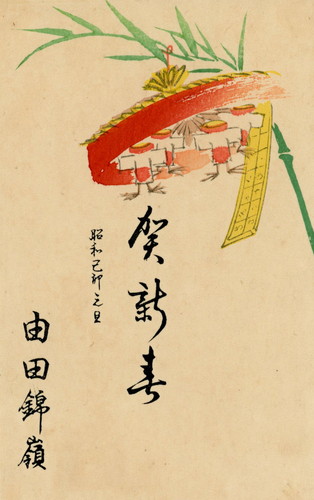 賀新春
昭和己卯元旦
由田錦嶺